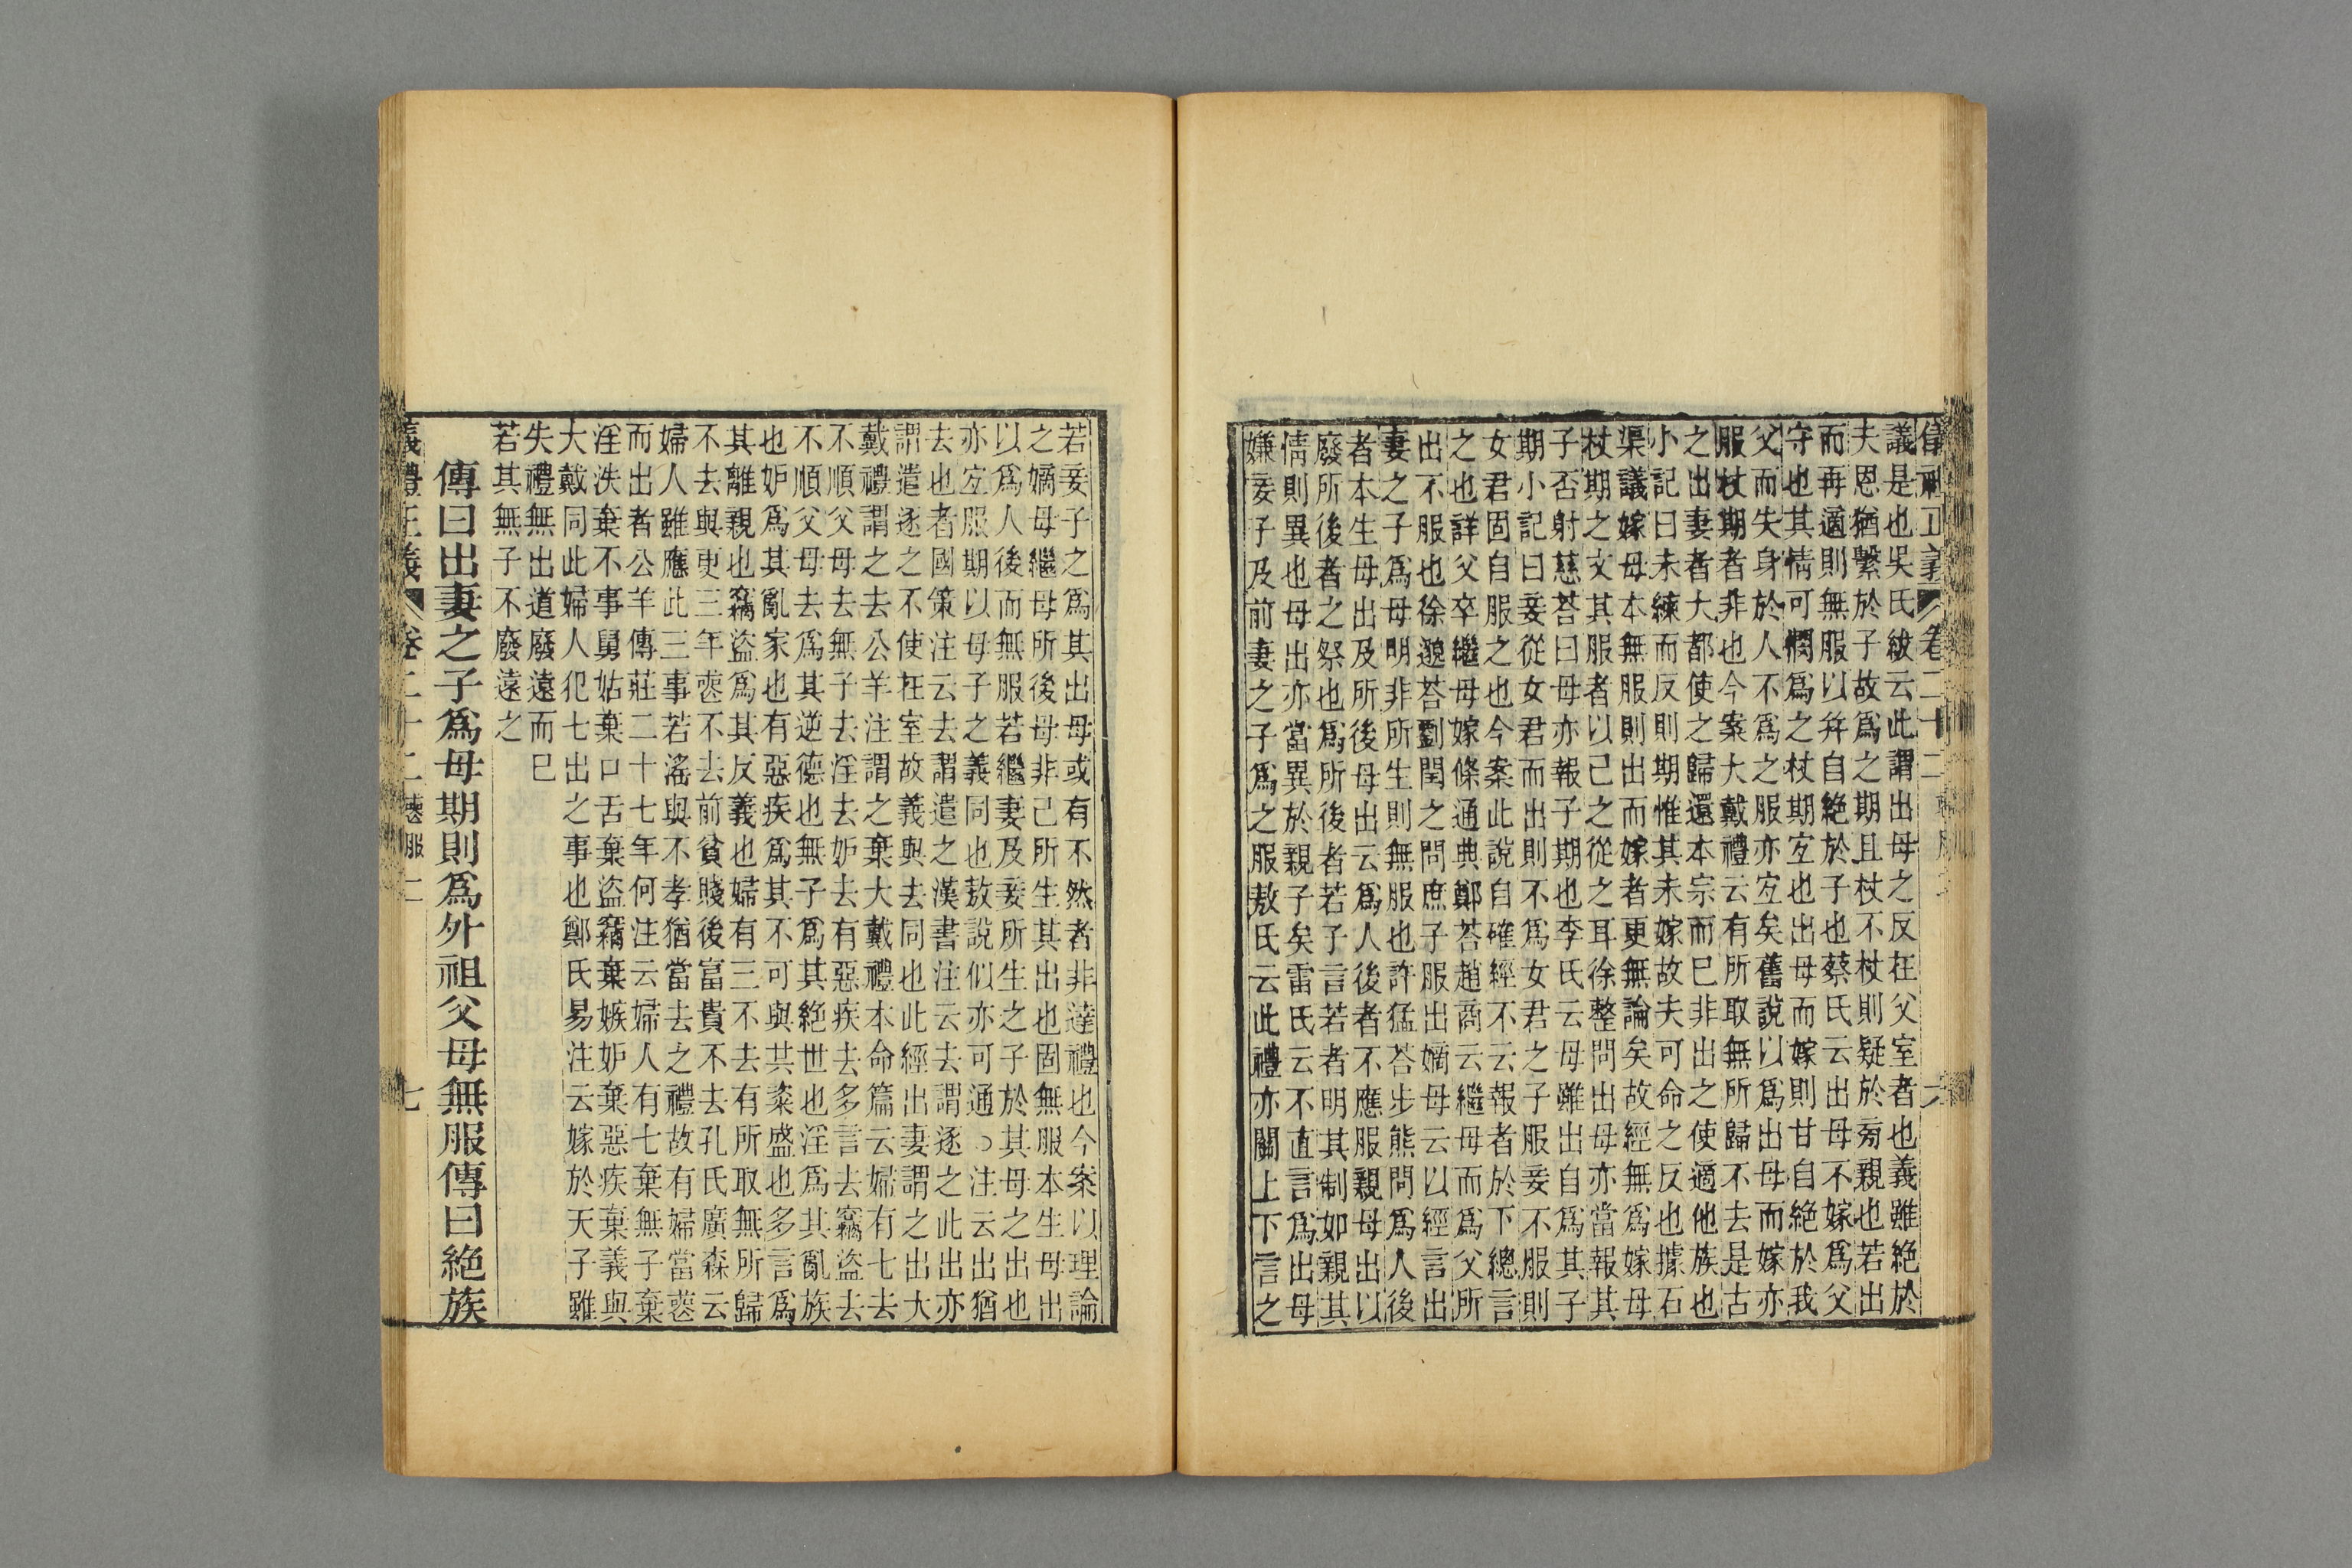 議是也吳氏紱云此謂出母之反在父室者也義雖絕於
夫恩猶繫於子故爲之期且杖不杖則疑於旁親也若出
而再適則無服以弁自絕於子也蔡氏云出母不嫁爲父
守也其情可憫爲之杖期宐也出母而嫁則甘自絕於我
父而失身於人不爲之服亦宐矣舊說以爲出母而嫁亦
服杖期者非也今案大戴禮云有所取無所歸不去是古
之出妻者大都使之歸還本宗而巳非出之使適他族也
小記曰未練而反則期惟其未嫁故夫可命之反也據石
渠議嫁母本無服則出而嫁者更無論矣故經無爲嫁母
杖期之文其服者以己之從之耳徐整問出母亦當報其
子否射慈荅曰母亦報子期也李氏云母雖出自爲其子
期小記曰妾從女君而出則不爲女君之子服妾不服則
女君固自服之也今案此說自確經不云報者於下總言
之也詳父卒繼母嫁條通典鄭荅趙商云繼母而爲父所
出不服也徐邈荅劉閏之問庶子服出嫡母云以經言出
妻之子爲母明非所生則無服也許猛荅步熊問爲人後
者本生母出及所後母出云爲人後者不應服親母出以
廢所後者之祭也爲所後者若子言若者明其制如親其
情則異也母出亦當異於親子矣雷氏云不直言爲出母
嫌妾子及前妻之子爲之服敖氏云此禮亦關上下言之
若妾子之爲其出母或有不然者非達禮也今案以理論
之嫡母繼母所後母非己所生其出也固無服本生母出
以爲人後而無服若繼妻及妾所生之子於其母之出也
亦宐服期以母子之義同也敖說似亦可通○注云出猶
去也者國策注云去謂遣之漢書注云去謂逐之此出亦
謂遣逐之不使在室故義與去同也此經出妻謂之出大
戴禮謂之去公羊注謂之棄大戴禮本命篇云婦有七去
不順父母去無子去淫去妒去有惡疾去多言去竊盜去
不順父母去爲其逆德也無子爲其絕世也淫爲其亂族
也妒爲其亂家也有惡疾爲其不可與共粢盛也多言爲
其離親也竊盜爲其反義也婦有三不去有所取無所歸
不去與更三年喪不去前貧賤後富貴不去孔氏廣森云
婦人雖應此三事若淫與不孝猶當去之禮故有婦當喪
而出者公羊傳莊二十七年何注云婦人有七棄無子棄
淫泆棄不事舅姑棄口舌棄盜竊棄嫉妒棄惡疾棄義與
大戴同此婦人犯七出之事也鄭氏易注云嫁於天子雖
失禮無出道廢遠而巳
若其無子不廢遠之
傳曰出妻之子爲母期則爲外祖父母無服傳曰絕族
儀禮正義 卷二十二 喪服二 七